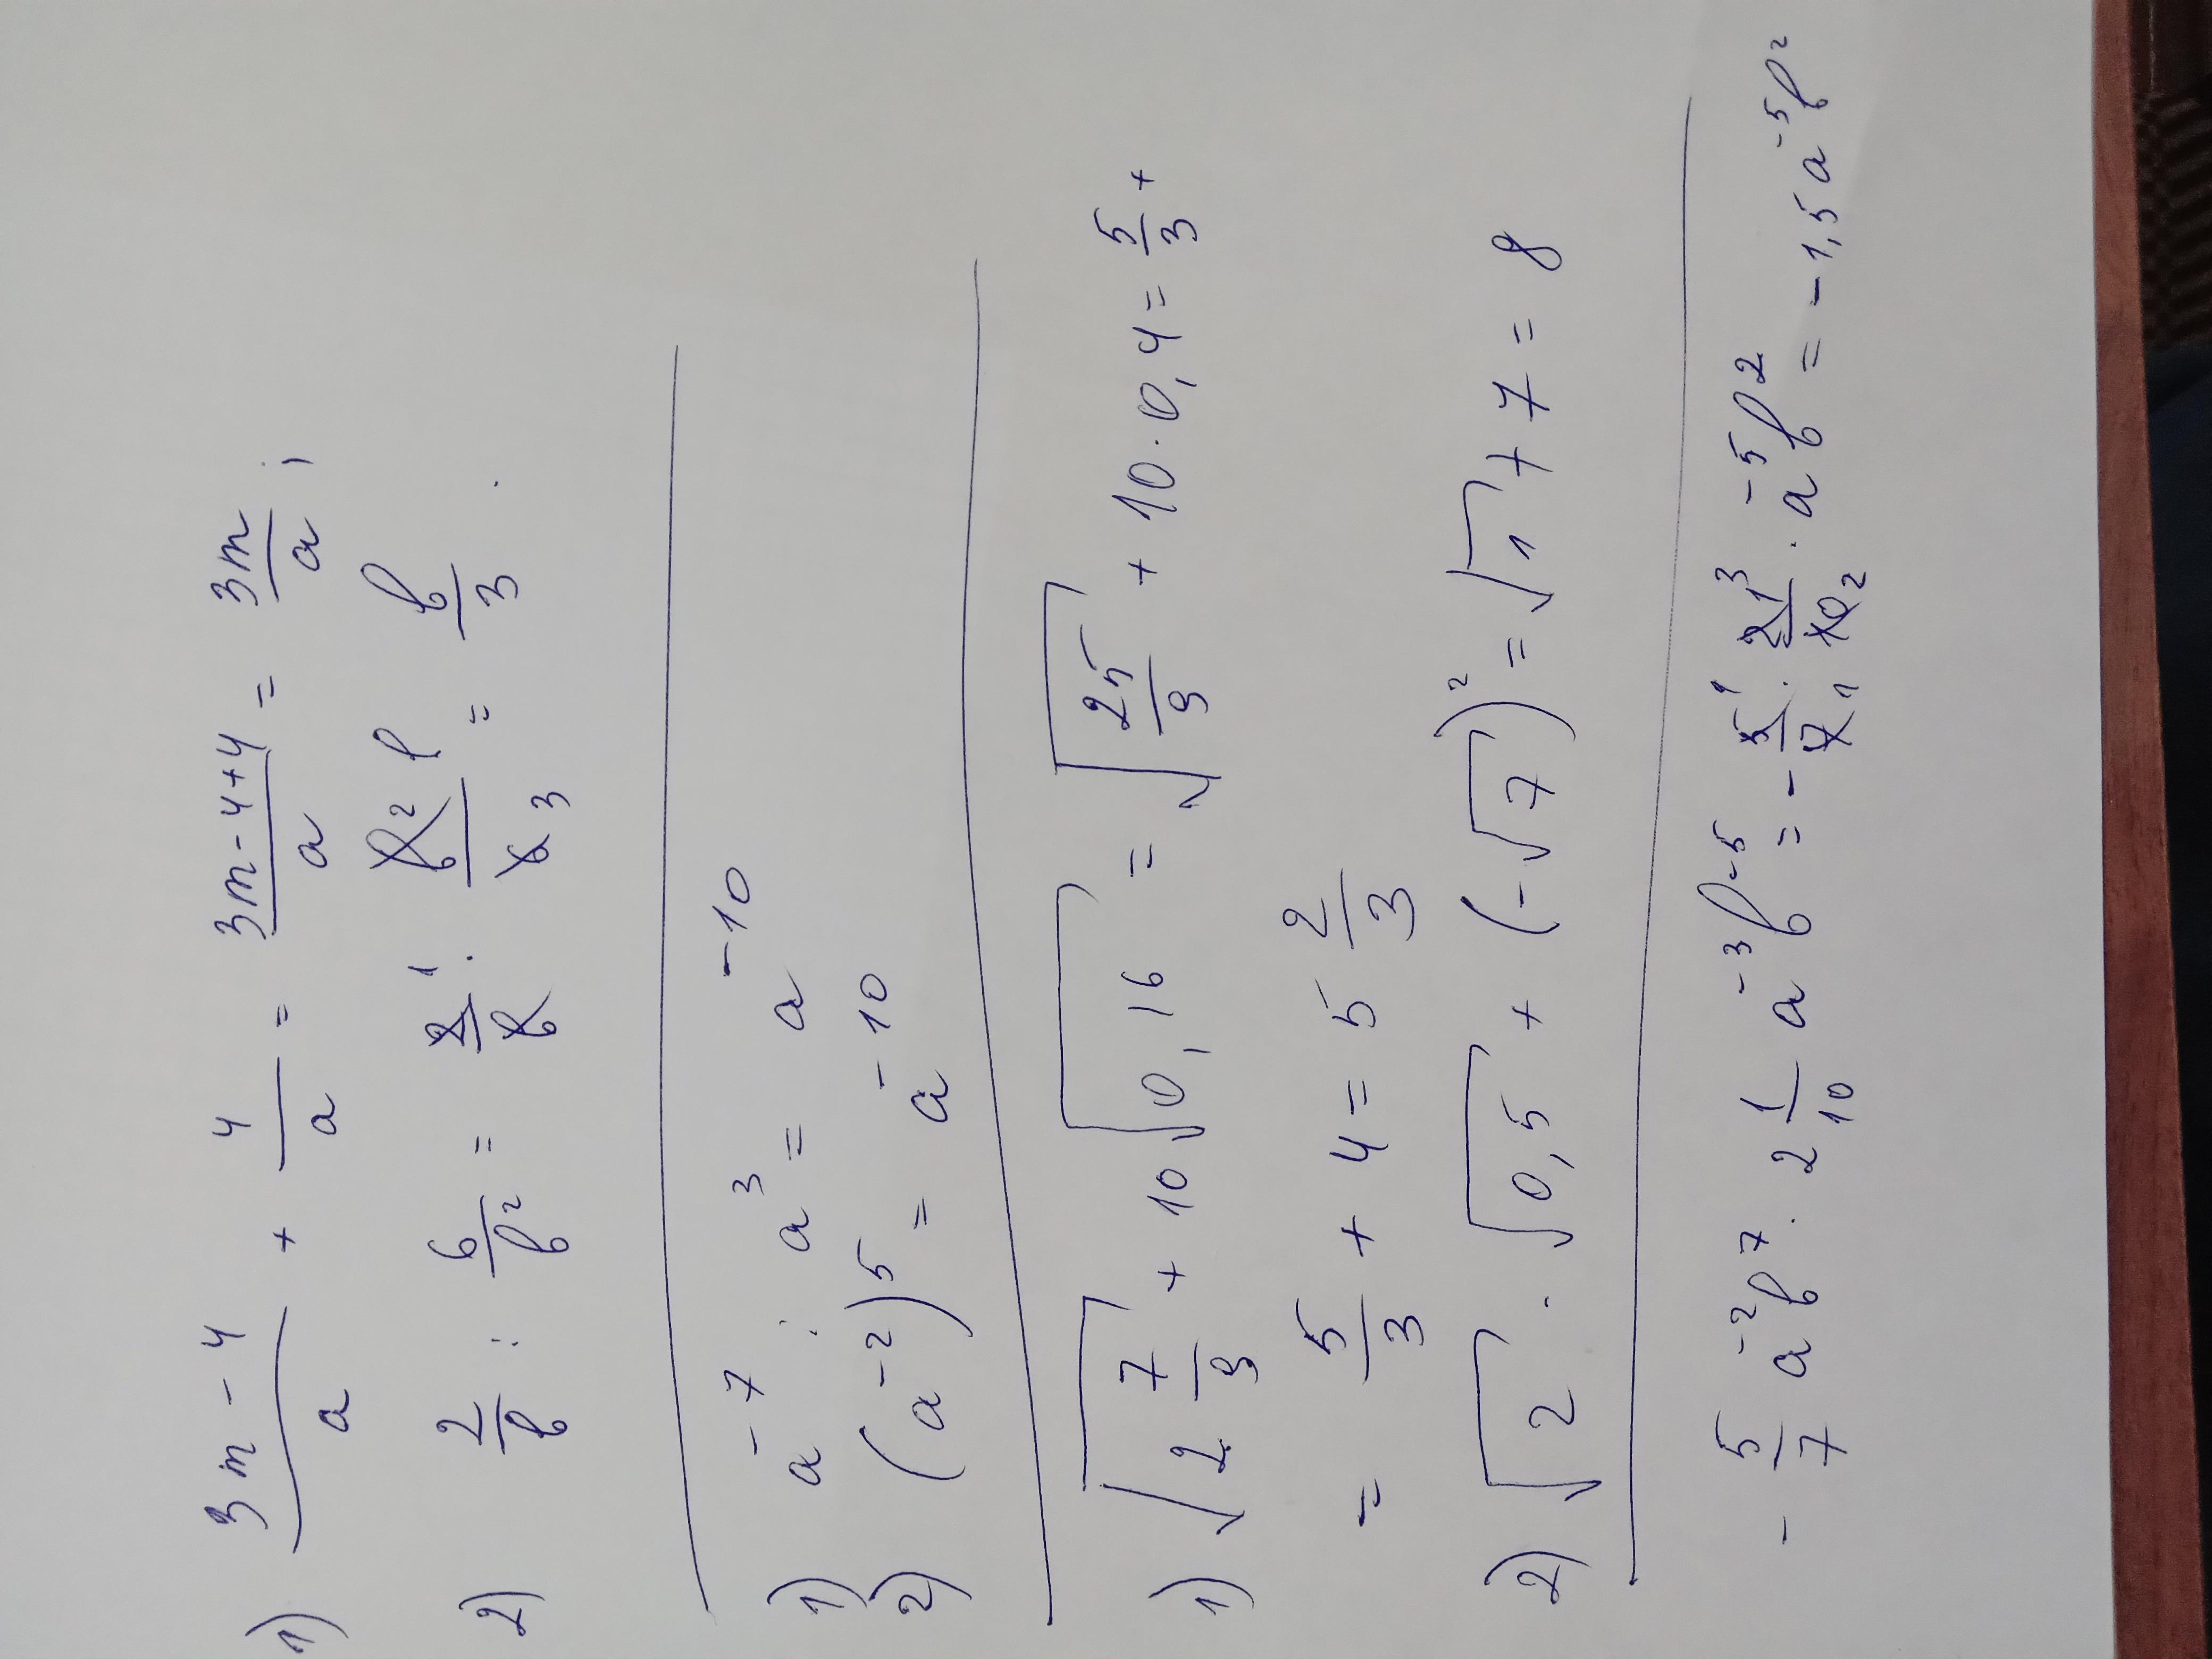 1) (3m-4)/a + 4/a = (3m-4+4)/a = 3m/a;
2) 2/b : 6/b² = 2¹/b · b² b/6 3 = b/3.
1) a⁻⁷ : a³ = a⁻¹⁰
2) (a⁻²)⁵ = a⁻¹⁰
1) √(2 7/9) + 10√0,16 = √(25/9) + 10·0,4 = 5/3 +
= 5/3 + 4 = 5 2/3
2) √2 · √0,5 + (-√7)² = √1 + 7 = 8
- 5/7 a⁻² b⁷ · 2 1/10 a⁻³ b⁻⁵ = - 5¹/7₁ · 21³/10₂ · a⁻⁵ b² = -1,5 a⁻⁵ b²